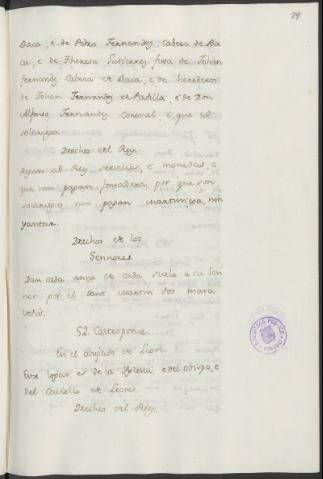 79
Baca, é de Pedro Fernandez Cabeza de Ba
ca, é de Theresa Gutierrez, fixa de Johan
fernandez Cabeza de Baca, é de herederos
de Johan Fernandez de Padilla, é de Don
Alfonso Fernandez Coronel, é que es
solariega.
Drechos del Rey.
Pagan al Rey servicios, é monedas, é
que non pagan fonsadera, por que son
solariegos nin pagan martiniega, nin
yantar.
Drechos de los
Sennores.
Dan cada anno de cada suelo a su Sen
nor por el Sant Martin dos mara
vedis.
52. Castroponce.
En el obispado de Leon
Este logar es de la Iglesia, é del obispo, é
del Cabildo de Leon.
Drechos del Rey.